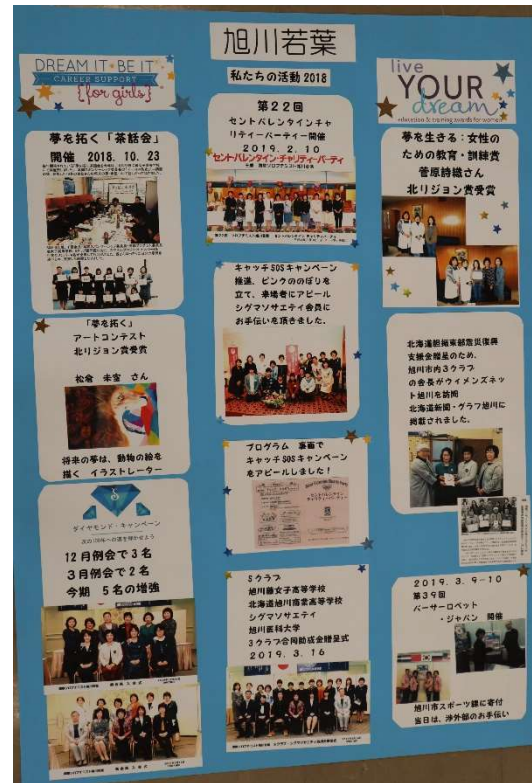 旭川若葉
私たちの活動 2018
DREAM IT BE IT
CAREER SUPPORT
{for girls}
夢を拓く「茶話会」
開催 2018.10.23
「夢を拓く」
アートコンテスト
北リジョン賞受賞
松倉 未室 さん
将来の夢は、動物の絵を
描く イラストレーター
ダイヤモンド・キャンペーン
12月例会で3名
3月例会で2名
今期 5名の増強
第22回
セントバレンタインチャ
リティーパーティー開催
2019.2.10
セントバレンタイン・チャリティーパーティ
キャッチSOSキャンペーン
推進、ピンクののぼりを
立て、来場者にアピール
シグマソサエティ会員に
お手伝いを頂きました。
プログラム 裏面で
キャッチSOSキャンペーン
をアピールしました!
Sクラブ
旭川藤女子高等学校
北海道旭川商業高等学校
シグマソサエティ
旭川医科大学
3クラブ合同助成金贈呈式
2019.3.16
live
YOUR
dream
education & training awards for women
夢を生きる:女性の
ための教育・訓練賞
菅原詩織さん
北リジョン賞受賞
北海道胆振東部震災復興
支援金贈呈のため、
旭川市内3クラブ
の会長がウィメンズネッ
ト旭川を訪問
北海道新聞・グラフ旭川に
掲載されました。
2019.3.9-10
第39回
バーサーロペット
・ジャパン 開催
旭川市スポーツ課に寄付
当日は、渉外部のお手伝い